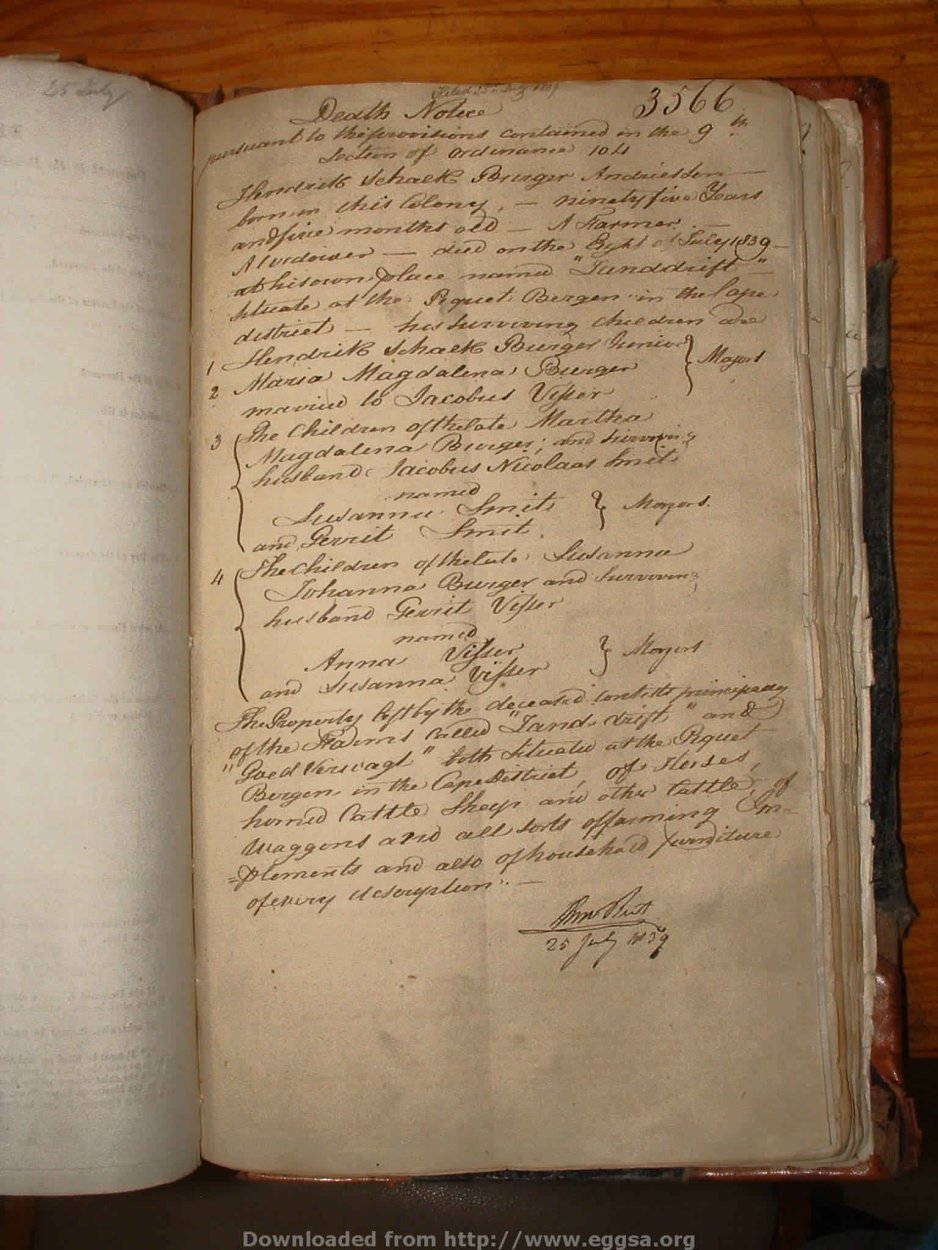 25 July
Filed 25 July 1839
3566
Death Notice
pursuant to the provisions contained in the 9th
Section of Ordinance 104
Hendrik Schalk Burger Andrieszoon —
born in this Colony, — ninety five Years
and five months old — A Farmer —
A Widower — died on the Eight of July 1839 —
at his own place named "Zanddrift" —
Situate at the Piquet Bergen in the Cape
district — his surviving children are
1 Hendrik Schalk Burger Junior } Majors
2 Maria Magdalena Burger
married to Jacobus Visser
3 The Children of the late Martha
Magdalena Burger; and surviving
husband Jacobus Nicolaas Smit
named
Susanna Smit } Majors.
and Gerrit Smit
4 The Children of the late Susanna
Johanna Burger and surviving
husband Gerrit Visser
named
Anna Visser } Majors
and Susanna Visser
The Property left by the deceased consists principally
of the Farms called "Zand drift" and
"Goed Verwagt" both situate at the Piquet
Bergen in the Cape District, of Horses,
horned Cattle Sheep and other Cattle, of
Waggons and all sorts of farming Im-
=plements and also of household furniture
of every description. —
25 July 1839
Downloaded from http://www.eggsa.org